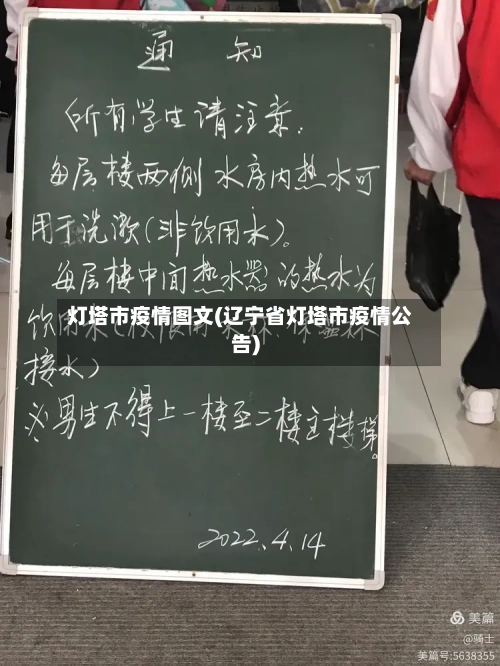 通 知
所有学生请注意:
每层楼两侧水房内热水可
用于洗漱(非饮用水)。
每层楼中间热水器的热水为
饮用水
灯塔市疫情图文(辽宁省灯塔市疫情公
告)
接水)
※男生不得上一楼至二楼主楼梯。
2022.4.14
美篇
@骑士
美篇号:5638355